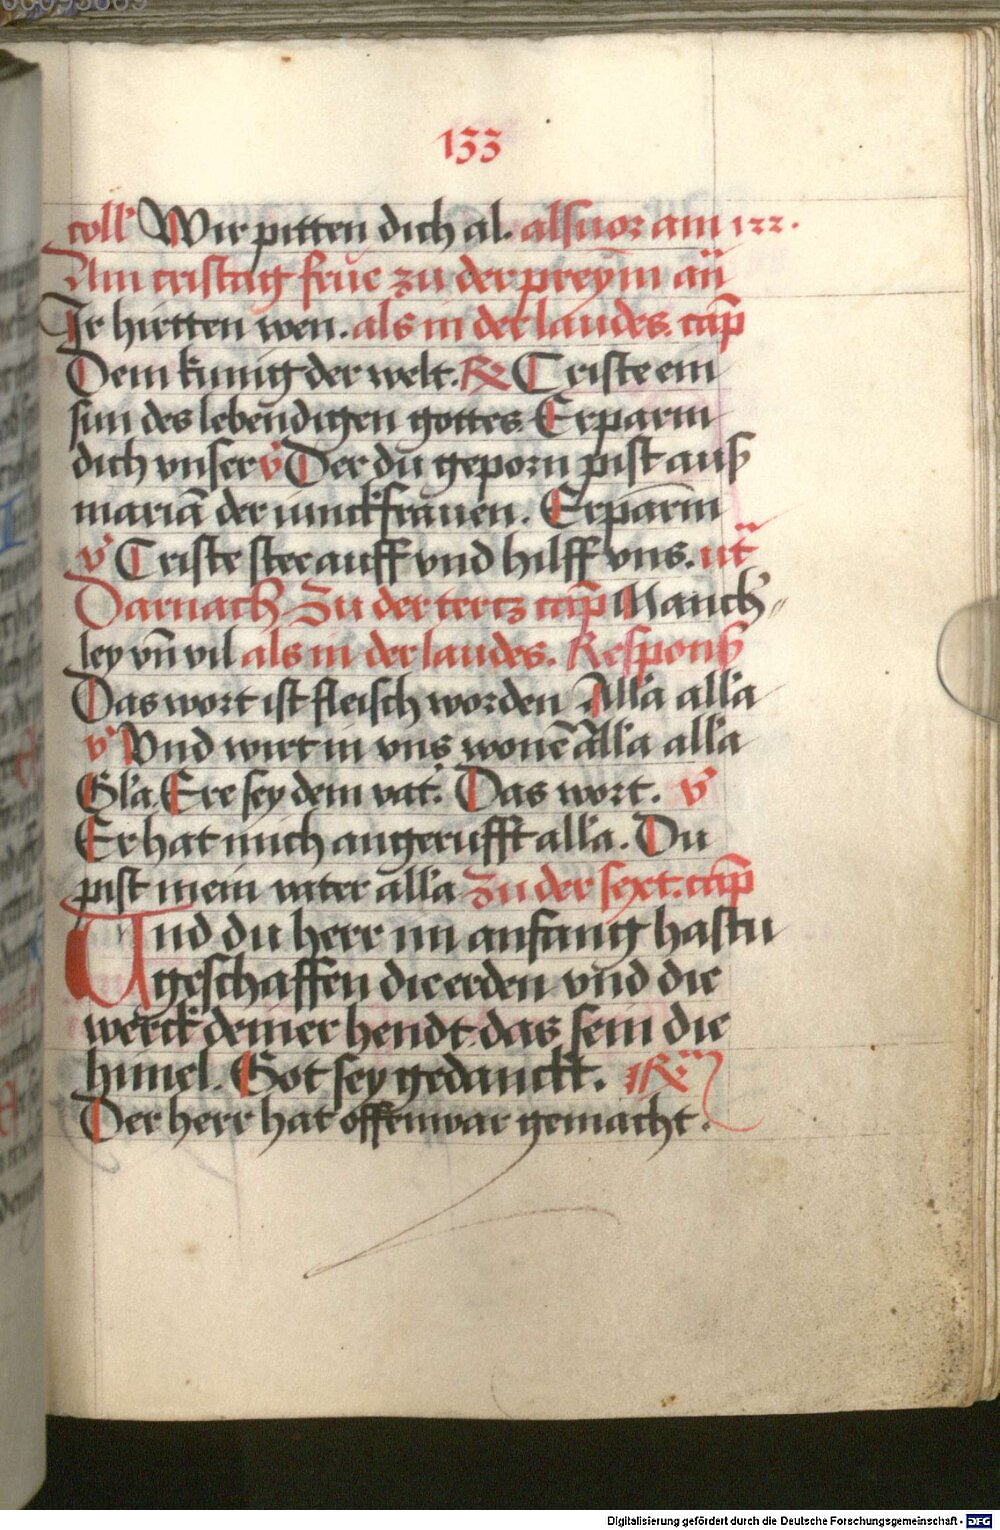 133
coll' Wir pitten dich al. als vor am 122.
Am cristag frue zu der preym an̄
Ir hirtten wen. als in der laudes. cap̄
Dem kunig der welt. R Criste ein
sun des lebendigen gottes. Erparm
dich vnser v̓ Der du geporn pist aus
mariā der iunckfrauen. Erparm
v̓ Criste stee auff vnd hilff vns. ut̄
Darnach Zu der tertz cap̄ Manch-
ley vn̄ vil als in der laudes. Respons
Das wort ist fleisch worden All'a all'a
v̓ Vnd wirt in vns wonē All'a all'a
Gl'a. Ere sey dem vat'. Das wort. v̓
Er hat mich angerufft all'a. Du
pist mein vater all'a Zu der sext. cap̄
Und du herr im anfang hastu
geschaffen die erden vnd die
werck deiner hendt das sein die
himel. Got sey gedanckt. R
Der herr hat offenwar gemacht.
Digitalisierung gefördert durch die Deutsche Forschungsgemeinschaft - DFG